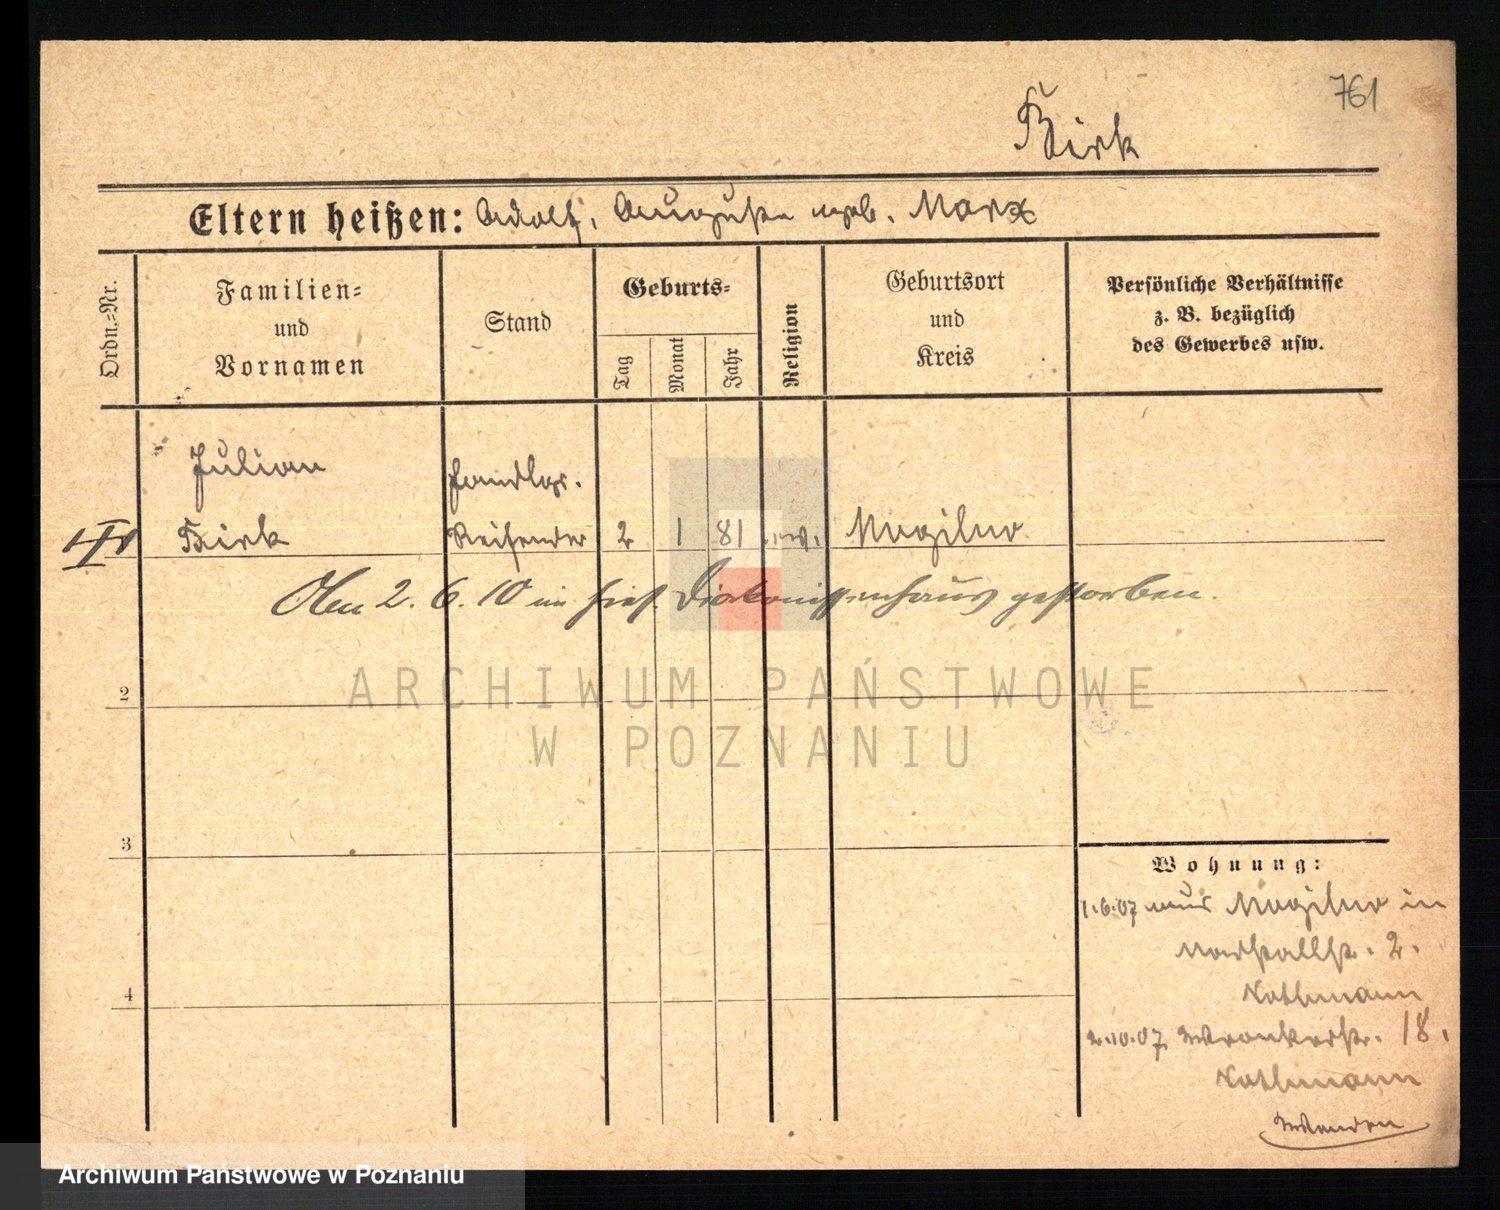 761
Birk
Eltern heißen: Adolf, Auguste geb. Marx
Ordn.-Nr.
Familien-
und
Vornamen
Stand
Geburts-
Tag
Monat
Jahr
Religion
Geburtsort
und
Kreis
Persönliche Verhältnisse
z. B. bezüglich
des Gewerbes usw.
Julian
Birk
Handlgs.
Reisender
2
1
81
Mogilno
Am 2. 6. 10 im hies. Diakonissenhaus gestorben.
2
3
4
Wohnung:
1.6.07 aus Mogilno in
Marstallstr. 2.
Kothmann
2.10.07 Wronkerstr. 18.
Kothmann
ARCHIWUM PAŃSTWOWE
W POZNANIU
Archiwum Państwowe w Poznaniu